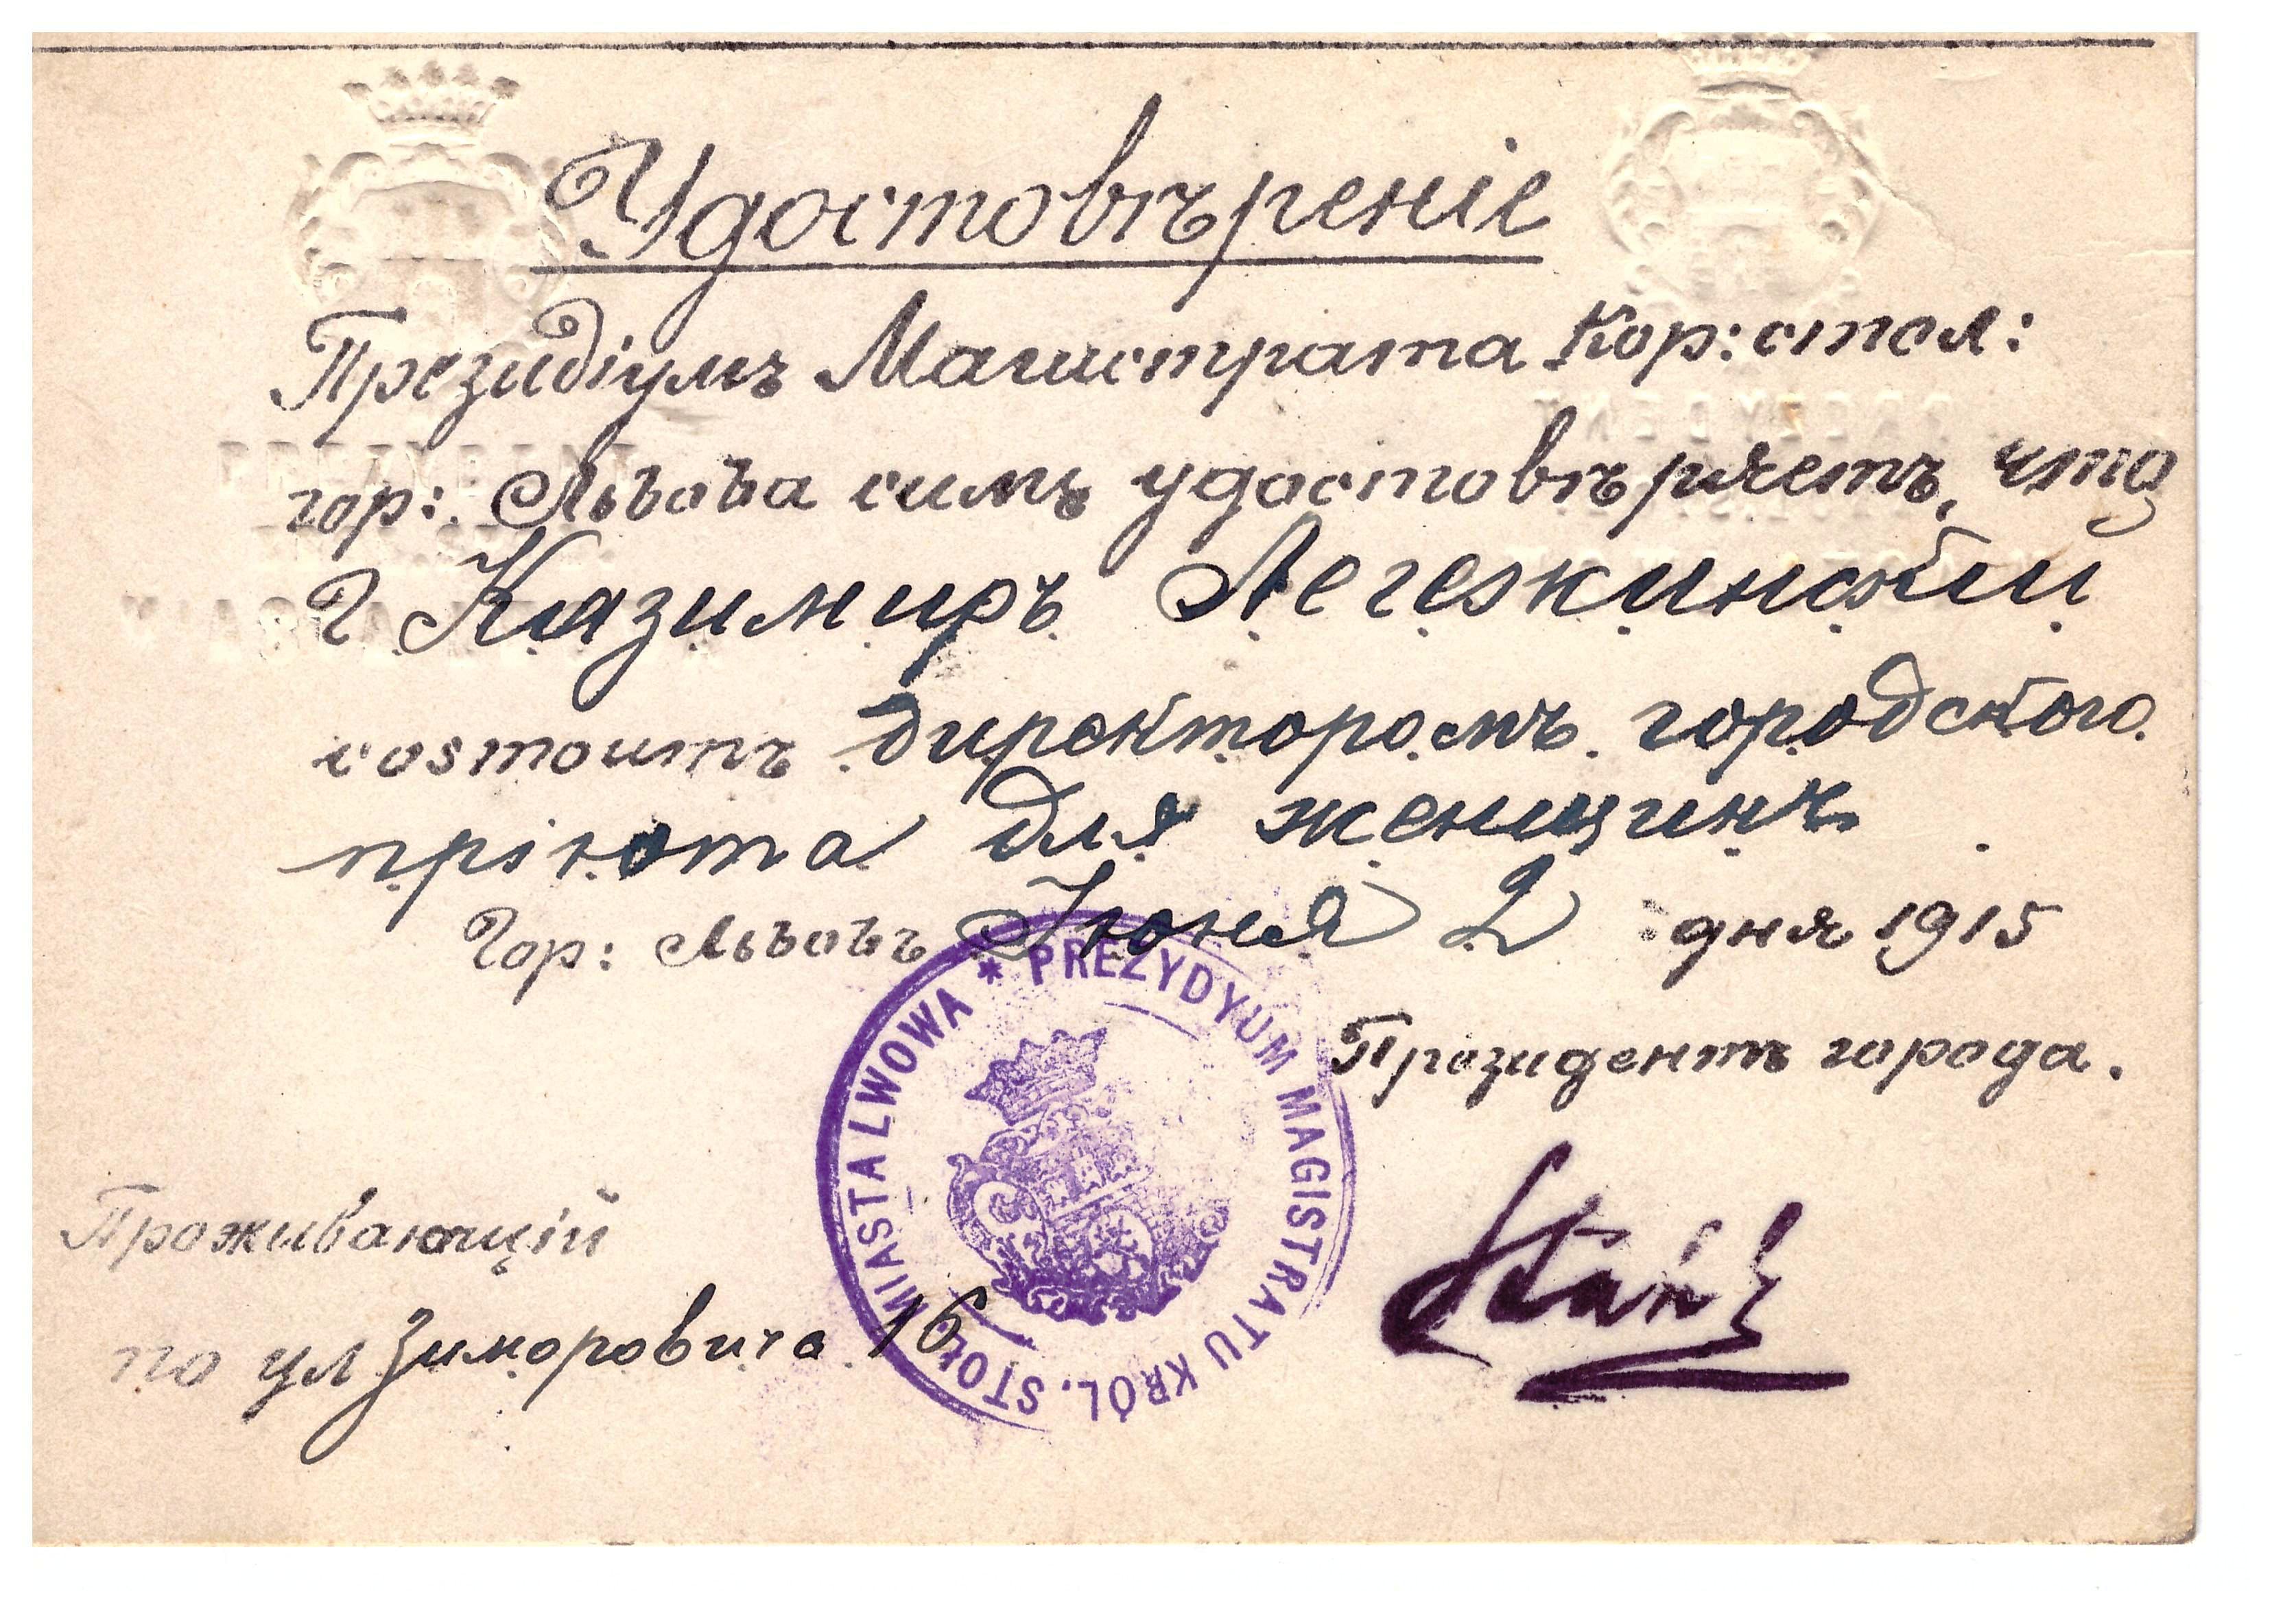 Удостовѣреніе
Президіумъ Магистрата Кор: стол:
гор: Львова симъ удостовѣряетъ, что
Г Казимиръ Легезкинскій
состоитъ директоромъ городского
пріюта для женщинъ
Гор: Львовъ Іюня 2 дня 1915
Президентъ города.
Проживающій
по ул Зиморовича 16
* PREZYDYUM MAGISTRATU KRÓL. STOŁ. MIASTA LWOWA